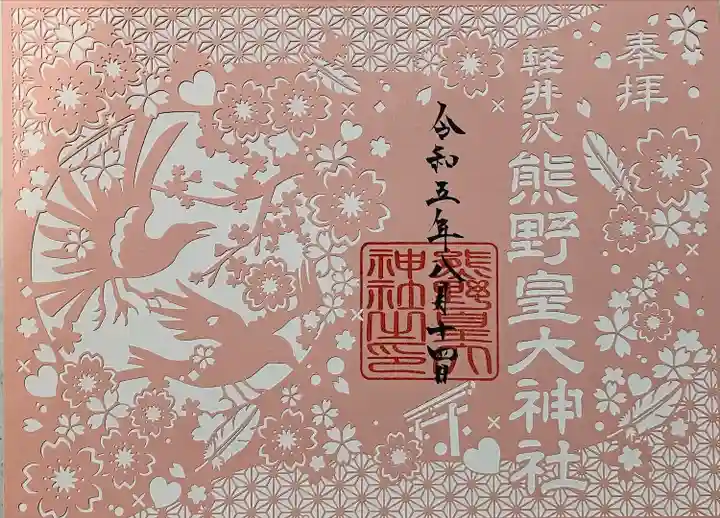 奉拝
軽井沢
熊野皇大神社
令和五年八月十四日
熊野皇大
神社之印